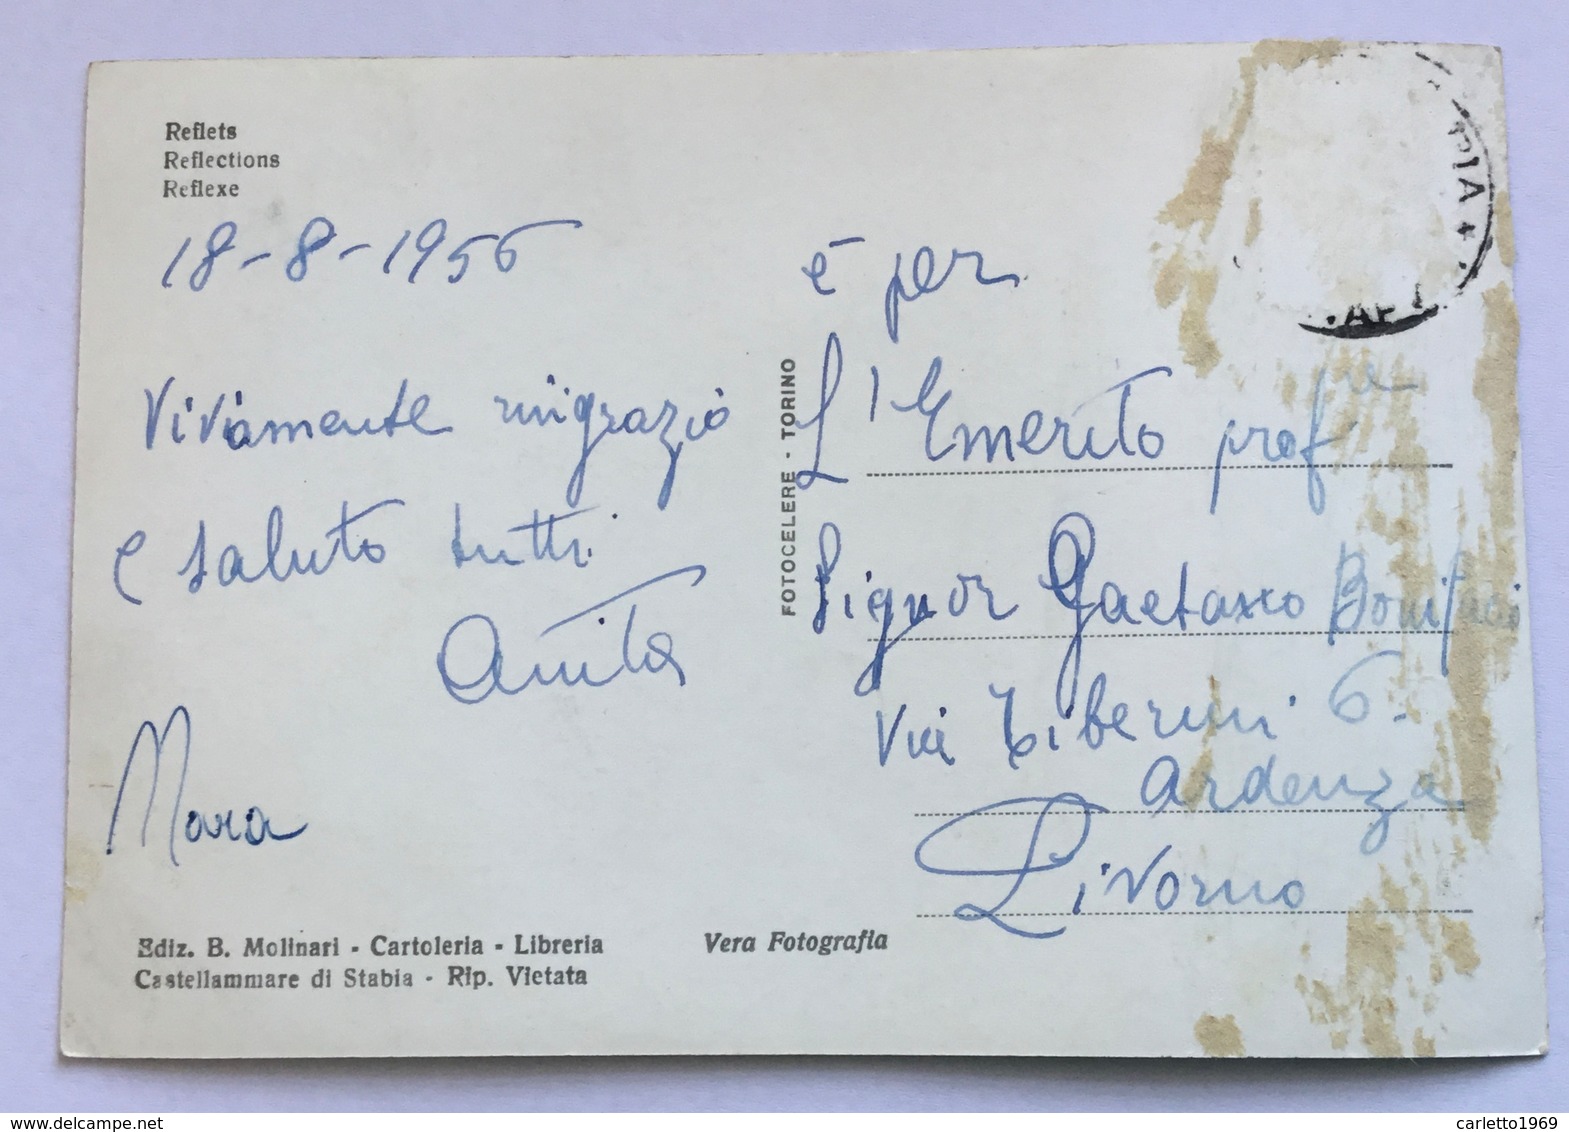 Reflets
Reflections
Reflexe
18-8-1956
Vivamente ringrazio
e saluto tutti
Anita
Mara
Ediz. B. Molinari - Cartoleria - Libreria
Castellammare di Stabia - Rip. Vietata
Vera Fotografia
FOTOCELERE - TORINO
è per
L'Emerito prof
Signor Gaetano Bonifaci
Via Tiberini 6.
Ardenza
Livorno
delcampe.net
carletto1969